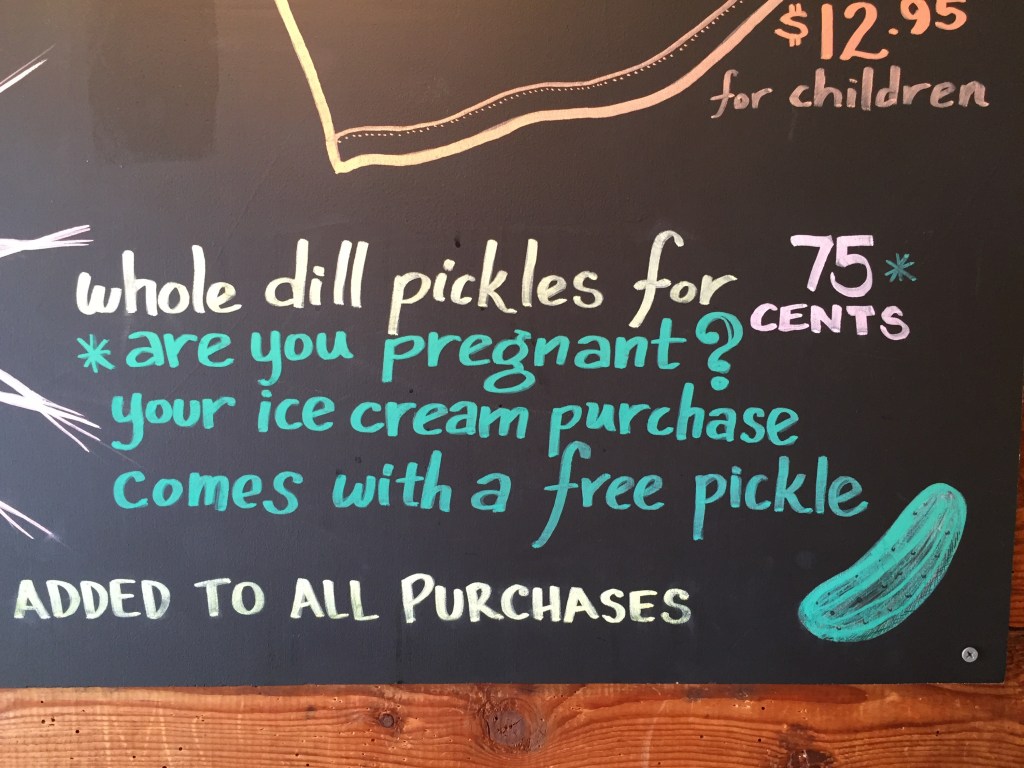 $12.95
for children
whole dill pickles for 75*
CENTS
*are you pregnant?
your ice cream purchase
comes with a free pickle
ADDED TO ALL PURCHASES